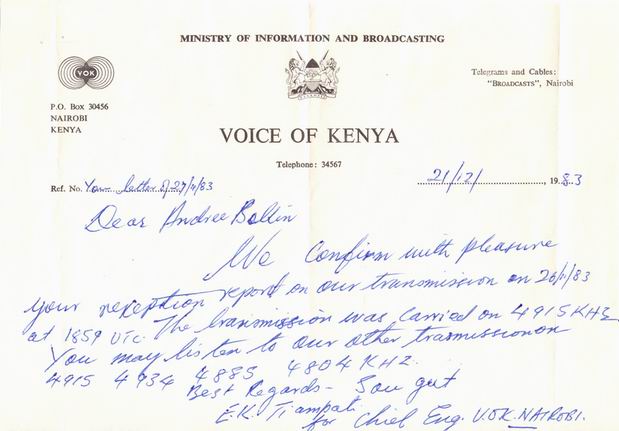 MINISTRY OF INFORMATION AND BROADCASTING
VOK
Telegrams and Cables:
"BROADCASTS", Nairobi
P.O. Box 30456
NAIROBI
KENYA
VOICE OF KENYA
Telephone: 34567
Ref. No. Your letter of 27/11/83
21/12/ 1983
Dear Andree Bollin
We Confirm with pleasure
your reception report on our transmission on 26/11/83
at 1859 UTC. The transmission was carried on 4915 KHZ
You may listen to our other trasmission on
4915 4934 4885 4804 KHZ.
Best Regards-
E.K. Tiampati
for Chief Eng. V.O.K. NAIROBI.